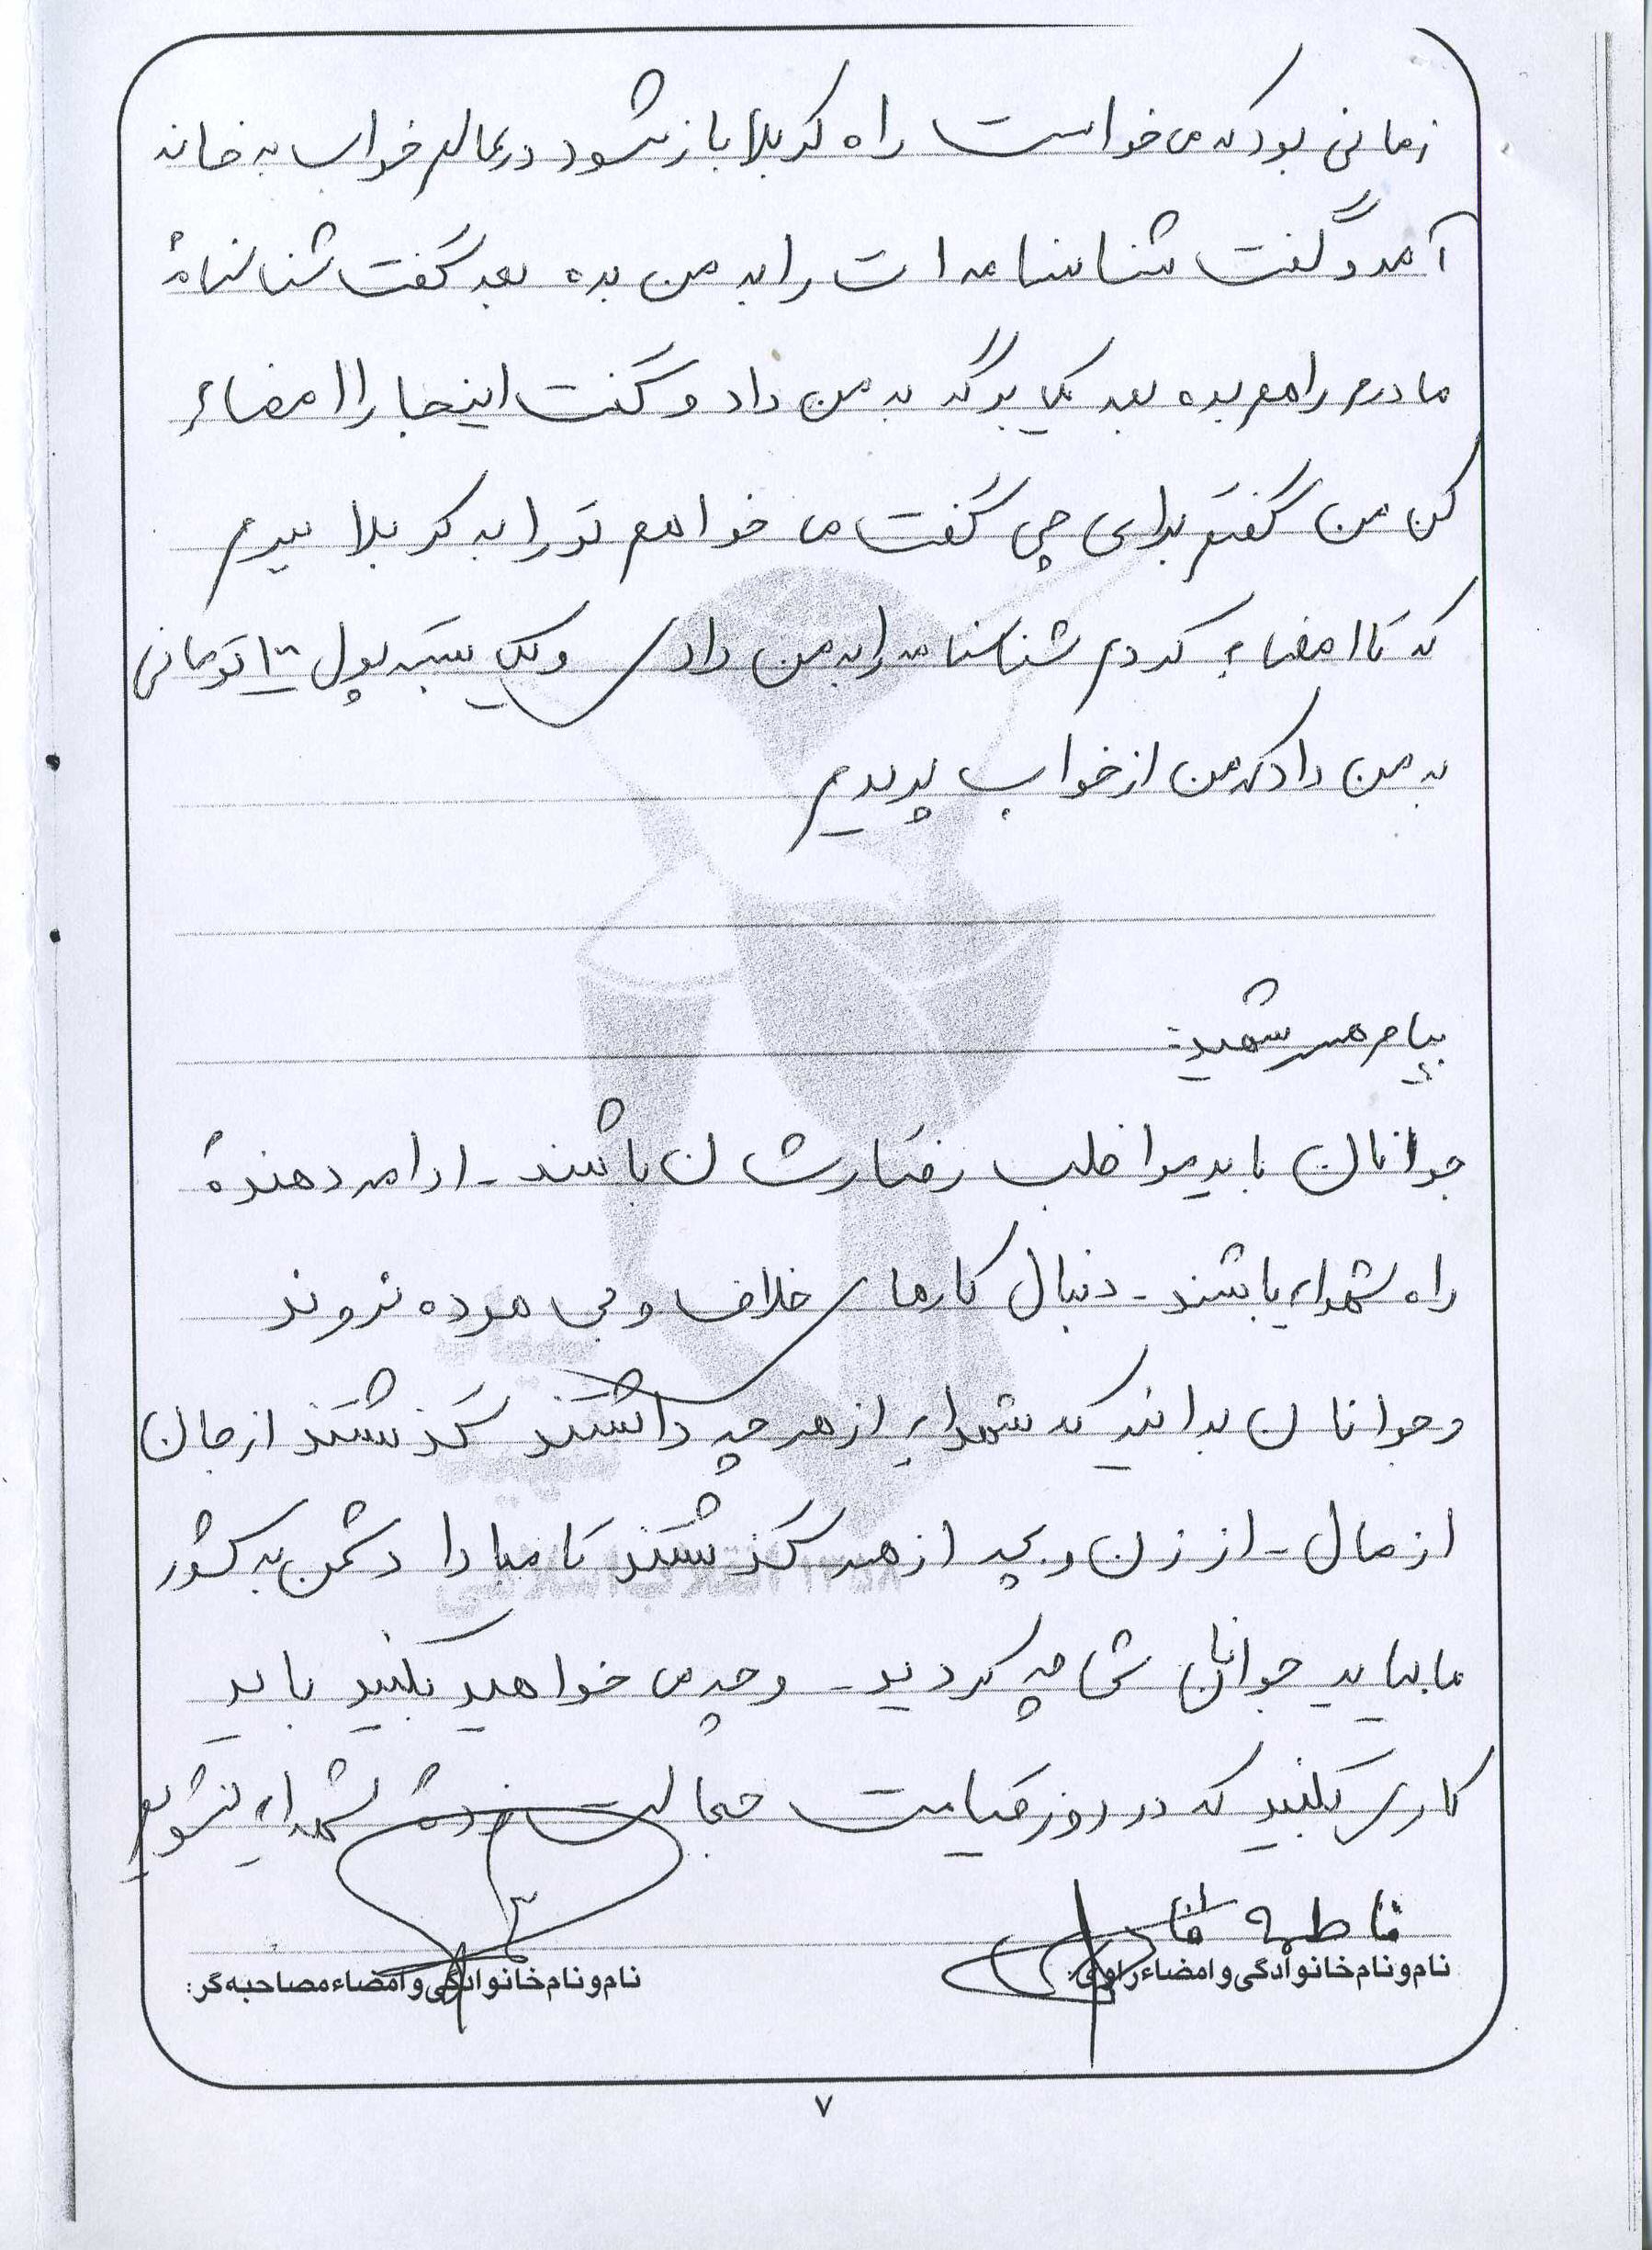 زمانی بود که می خواست راه کربلا باز شود در عالم خواب به خانه
آمد و گفت شناسنامه ات را به من بده بعد گفت شناسنامهٔ
مادرم را هم بده بعد یک برگه به من داد و گفت اینجا را امضاء
کن من گفتم برای چی گفت می خواهم تو را به کربلا ببرم
که تا امضاء کردم شناسنامه را به من داد و یک بسته پول ۱۰۰ تومانی
به من داد که من از خواب پریدم
پیام همسر شهید:
جوانان باید مواظب رفتارشان باشند - ادامه دهندهٔ
راه شهداء باشند - دنبال کارهای خلاف و بی هوده نروند
و جوانان بدانید که شهداء از هر چه داشتند گذشتند از جان
از مال - از زن و بچه از همه گذشتند تا مبادا دشمن به کشور
ما بیاید جوانان شما چه کردید - و چه می خواهید بکنید باید
کاری بکنید که در روز قیامت خجالت زدهٔ شهداء نشویم
فاطمه
نام و نام خانوادگی و امضاء راوی:
نام و نام خانوادگی و امضاء مصاحبه گر:
۷